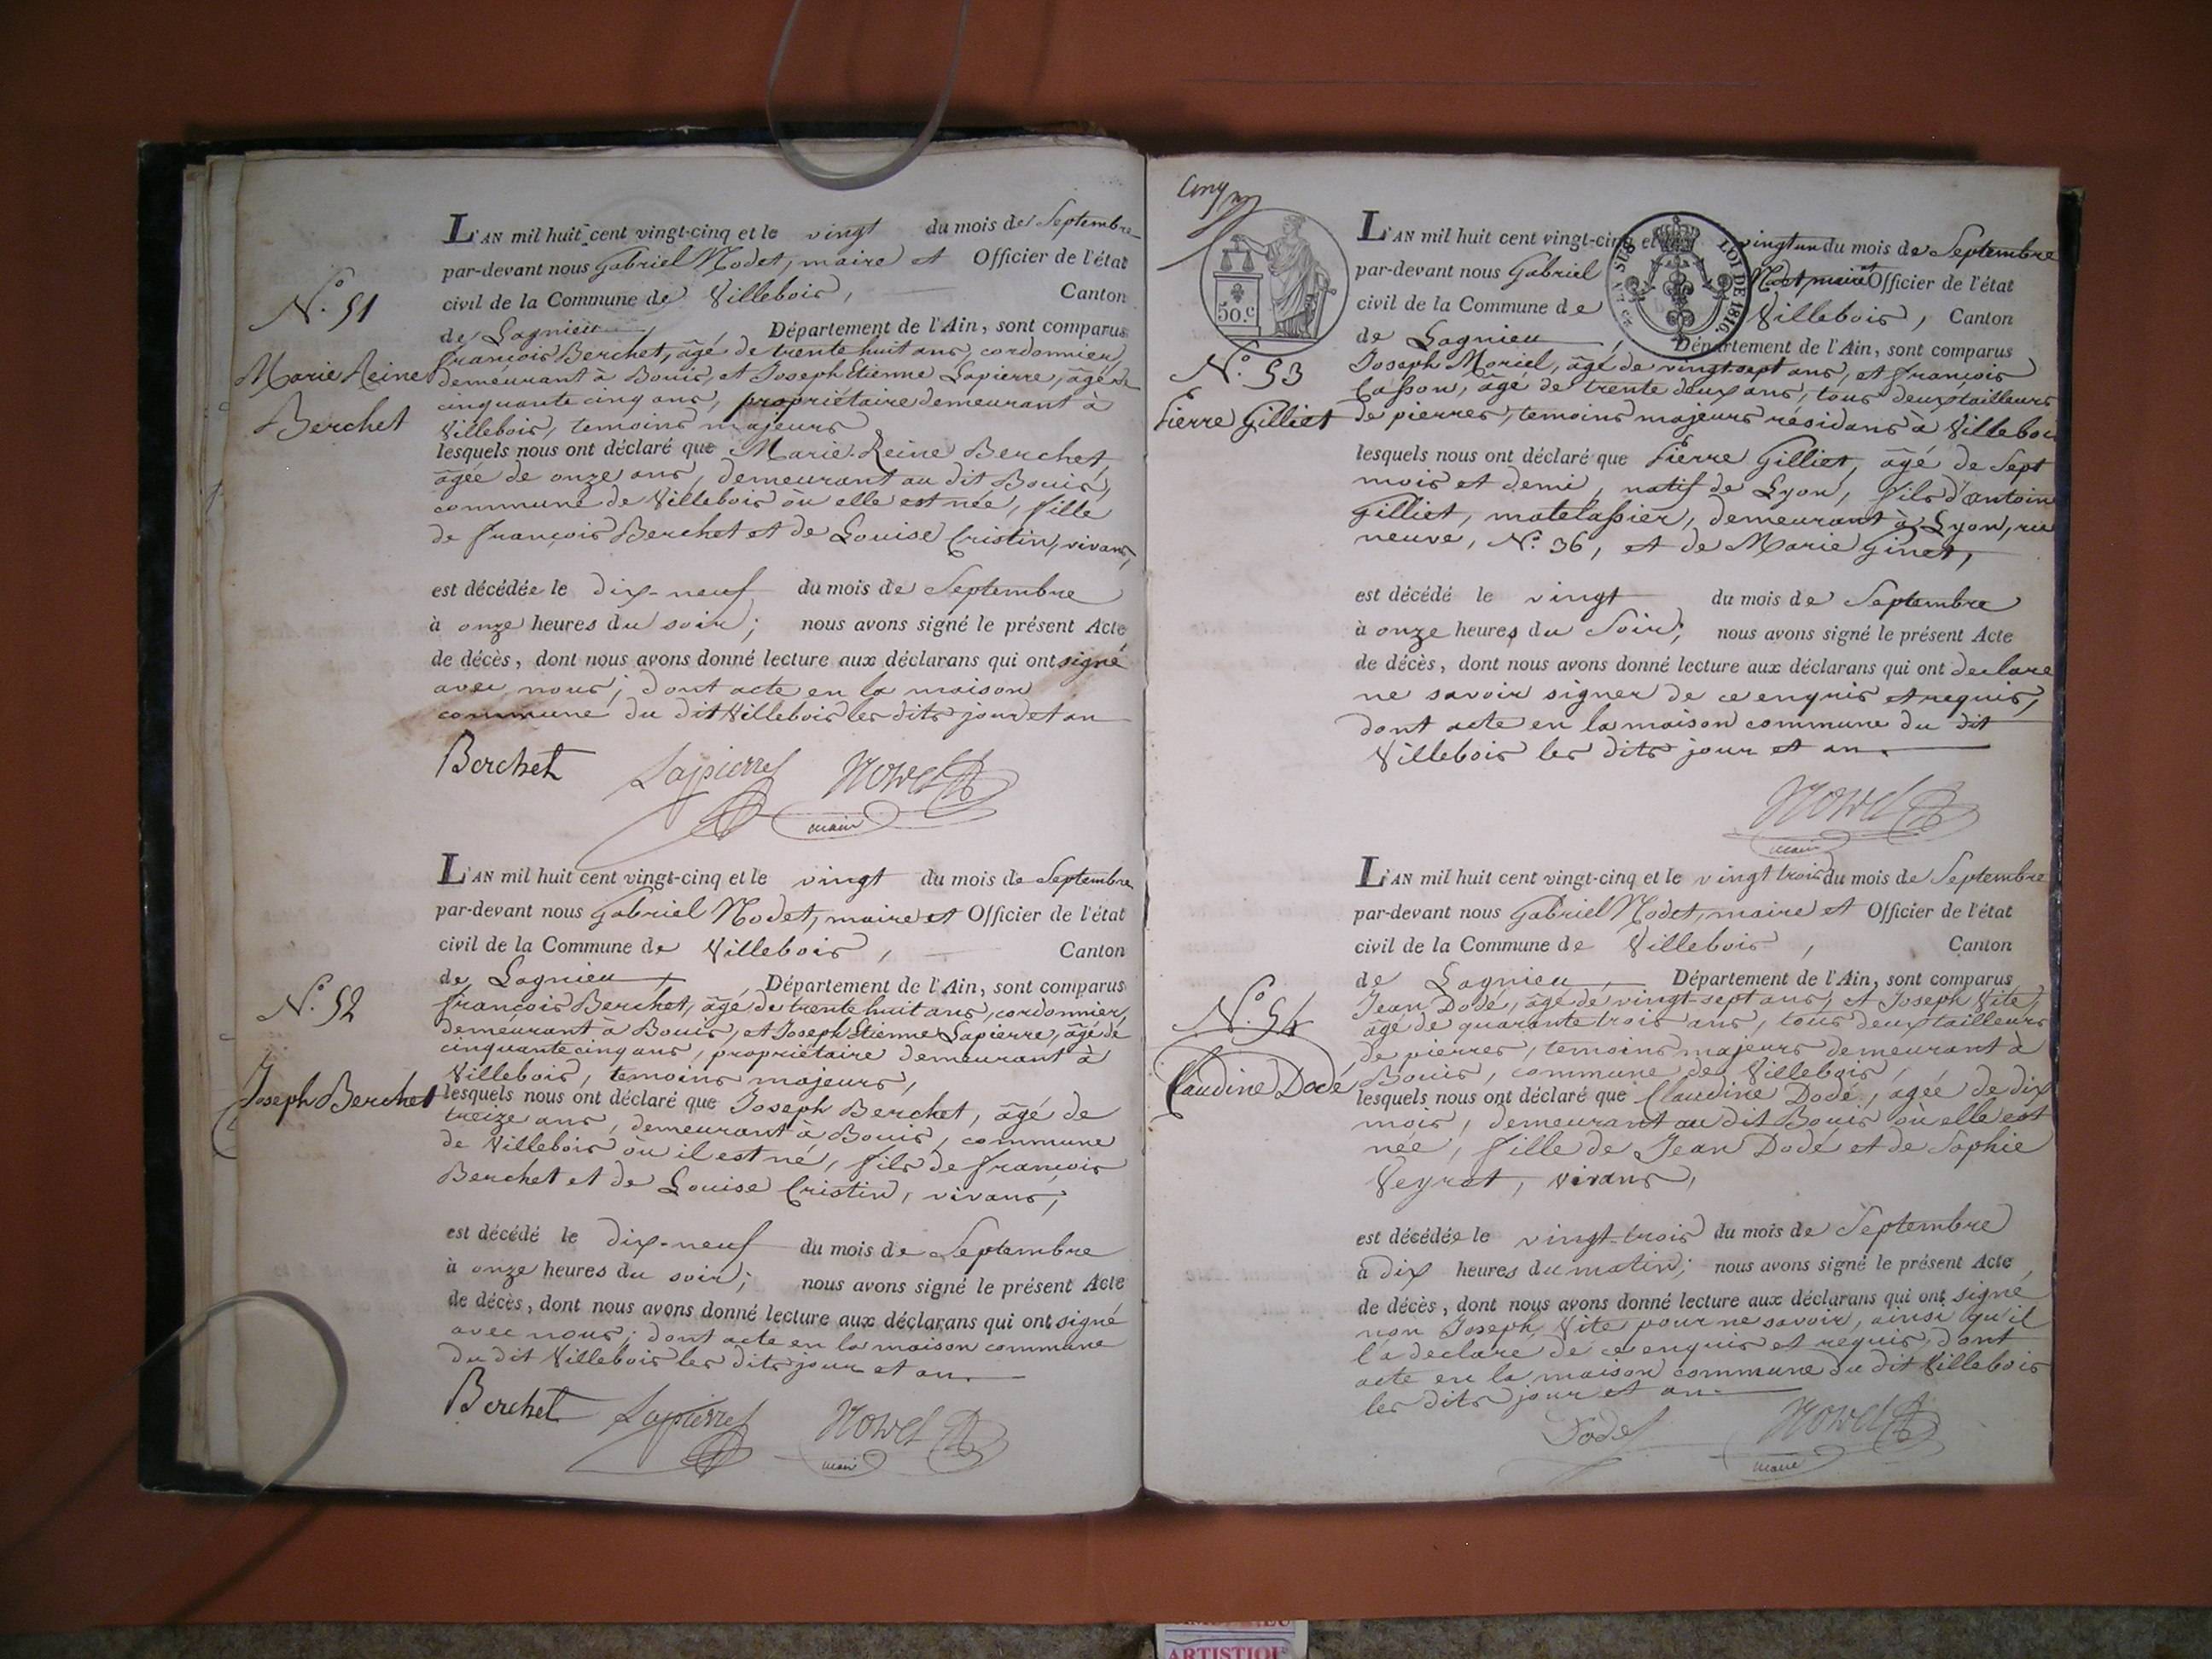 L'AN mil huit cent vingt-cinq et le vingt du mois de Septembre
par-devant nous Gabriel Nodet, maire et Officier de l'état
civil de la Commune de Villebois, Canton
de Lagnieu, Département de l'Ain, sont comparus
N.o 51
Marie Reine
Berchet
françois Berchet, âgé de trente huit ans, cordonnier,
demeurant à Bouis, et Joseph Etienne Lapierre, âgé de
cinquante cinq ans, propriétaire demeurant à
Villebois, temoins majeurs
lesquels nous ont déclaré que Marie Reine Berchet,
âgée de onze ans, demeurant au dit Bouis,
commune de Villebois où elle est née, fille
de françois Berchet et de Louise Cristin, vivans,
est décédée le dix-neuf du mois de Septembre
à onze heures du soir; nous avons signé le présent Acte
de décès, dont nous avons donné lecture aux déclarans qui ont signé
avec nous; dont acte en la maison
commune du dit Villebois les dits jour et an
Berchet Lapierre Nodet
maire
L'AN mil huit cent vingt-cinq et le vingt du mois de Septembre
par-devant nous Gabriel Nodet, maire et Officier de l'état
civil de la Commune de Villebois, Canton
de Lagnieu, Département de l'Ain, sont comparus
N.o 52
Joseph Berchet
françois Berchet, âgé de trente huit ans, cordonnier,
demeurant à Bouis, et Joseph Etienne Lapierre, âgé de
cinquante cinq ans, propriétaire demeurant à
Villebois, temoins majeurs,
lesquels nous ont déclaré que Joseph Berchet, âgé de
treize ans, demeurant à Bouis, commune
de Villebois où il est né, fils de françois
Berchet et de Louise Cristin, vivans,
est décédé le dix-neuf du mois de Septembre
à onze heures du soir; nous avons signé le présent Acte
de décès, dont nous avons donné lecture aux déclarans qui ont signé
avec nous; dont acte en la maison commune
du dit Villebois les dits jour et an.
Berchet Lapierre Nodet
maire
50.c
LOI DE 1816.
L'AN mil huit cent vingt-cinq et le vingt un du mois de Septembre
par-devant nous Gabriel Nodet, maire et Officier de l'état
civil de la Commune de Villebois, Canton
de Lagnieu, Département de l'Ain, sont comparus
N.o 53
Pierre Gilliet
Joseph Moriel, âgé de vingt-sept ans, et françois
Casson, âgé de trente deux ans, tous deux tailleurs
de pierres, temoins majeurs résidans à Villebois
lesquels nous ont déclaré que Pierre Gilliet, âgé de Sept
mois et demi, natif de Lyon, fils d'antoine
Gilliet, matelassier, demeurant à Lyon, rue
neuve, N.o 36, et de Marie Ginet,
est décédé le vingt du mois de Septembre
à onze heures du Soir; nous avons signé le présent Acte
de décès, dont nous avons donné lecture aux déclarans qui ont declare
ne savoir signer de ce enquis et requis,
dont acte en la maison commune du dit
Villebois les dits jour et an.
Nodet
maire
L'AN mil huit cent vingt-cinq et le vingt trois du mois de Septembre
par-devant nous Gabriel Nodet, maire et Officier de l'état
civil de la Commune de Villebois, Canton
de Lagnieu, Département de l'Ain, sont comparus
N.o 54
Claudine Dodé
Jean Dodé, âgé de vingt-sept ans, et Joseph Vite,
âgé de quarante trois ans, tous deux tailleurs
de pierres, temoins majeurs demeurant à
Bouis, commune de Villebois,
lesquels nous ont déclaré que Claudine Dodé, agée de dix
mois, demeurant au dit Bouis où elle est
née, fille de Jean Dodé et de Sophie
Veyrat, vivans,
est décédée le vingt-trois du mois de Septembre
à dix heures du matin; nous avons signé le présent Acte
de décès, dont nous avons donné lecture aux déclarans qui ont signé
non Joseph Vite pour ne savoir, ainsi qu'il
l'a declare de ce enquis et requis, dont
acte en la maison commune du dit Villebois
les dits jour et an.
Dode Nodet
maire
ARTISTIQUE